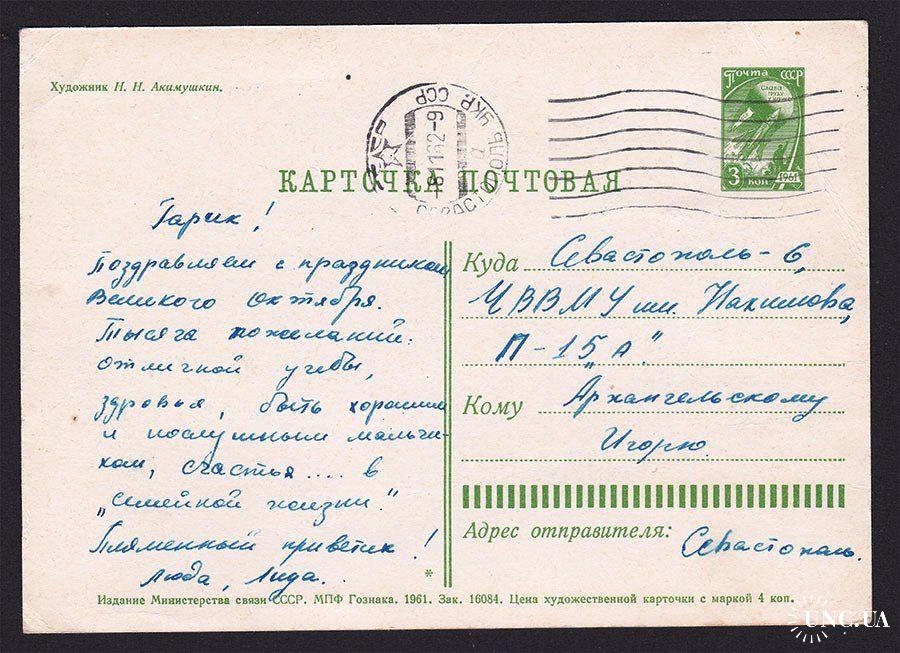 Художник Н. Н. Акимушкин.
Почта СССР
Слава
труду
3 коп
1961
СЕВАСТОПОЛЬ УКР. ССР
-8 11 62-9
КАРТОЧКА ПОЧТОВАЯ
Гарик!
Поздравляем с праздником
Великого Октября.
Тысяча пожеланий:
отличной учебы,
здоровья, быть хорошим
и послушным мальчи-
ком, счастья.... в
„семейной жизни".
Пламенный приветик!
Люда, Лида..
*
Куда Севастополь-6,
ЧВВМУ им. Нахимова,
П-15 „А."
Кому Архангельскому
Игорю.
Адрес отправителя: Севастополь.
Издание Министерства связи СССР. МПФ Гознака. 1961. Зак. 16084. Цена художественной карточки с маркой 4 коп.
UNC.UA